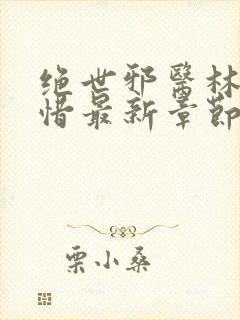 绝世邪医林
惜最新章节
栗小桑